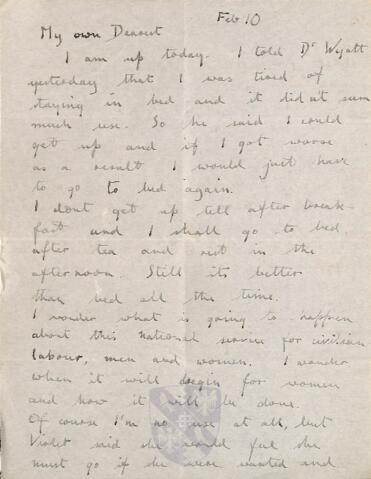 Feb 10
My own Dearest
I am up today. I told Dr Wyatt
yesterday that I was tired of
staying in bed and it didn't seem
much use. So he said I could
get up and if I got worse
as a result I would just have
to go to bed again.
I dont get up till after break-
fast and I shall go to bed
after tea and rest in the
afternoon. Still its better
than bed all the time.
I wonder what is going to happen
about this national service for civilian
labour, men and women. I wonder
when it will begin for women
and how it will be done.
Of course I'm no use at all, but
Violet said she would feel she
must go if she were wanted and